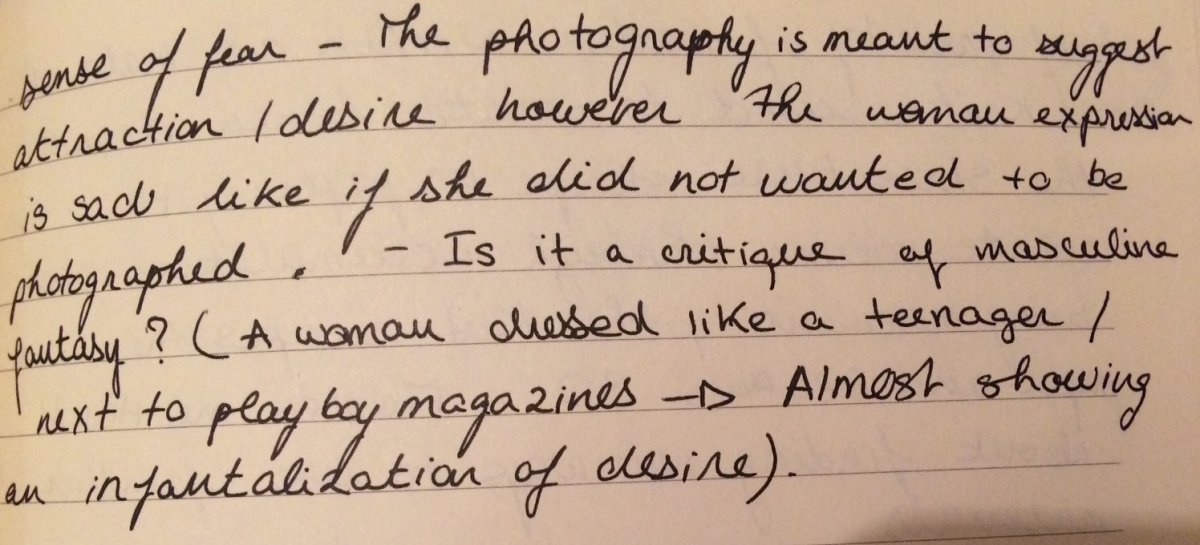 sense of fear - The photography is meant to suggest
attraction / desire however the woman expression
is sad like if she did not wanted to be
photographed. - Is it a critique of masculine
fantasy? (A woman dressed like a teenager /
next to play boy magazines -> Almost showing
an infantalization of desire).